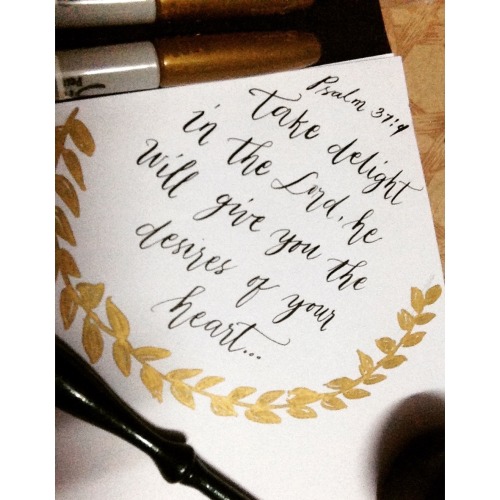 Psalm 37:4
take delight
in the Lord, he
will give you the
desires of your
heart...